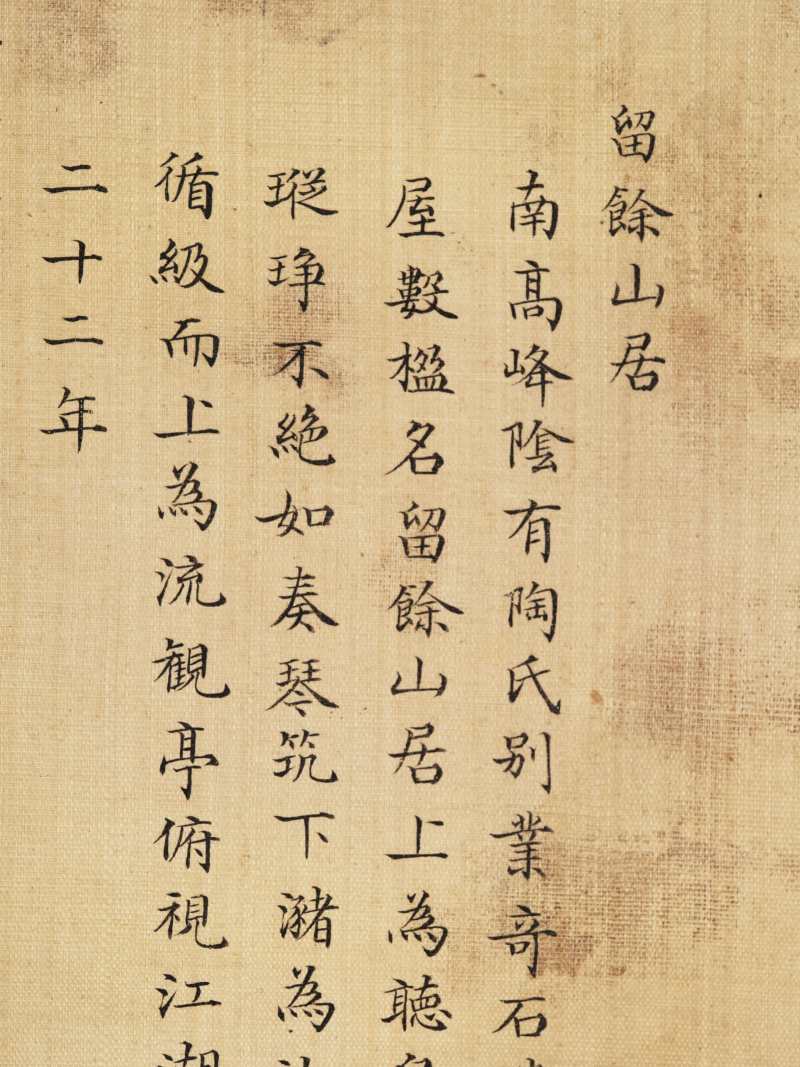 留餘山居
南高峰陰有陶氏别業奇石
屋數楹名留餘山居上為聴
瑽琤不絶如奏琴筑下瀦為
循級而上為流観亭俯視江湖
二十二年